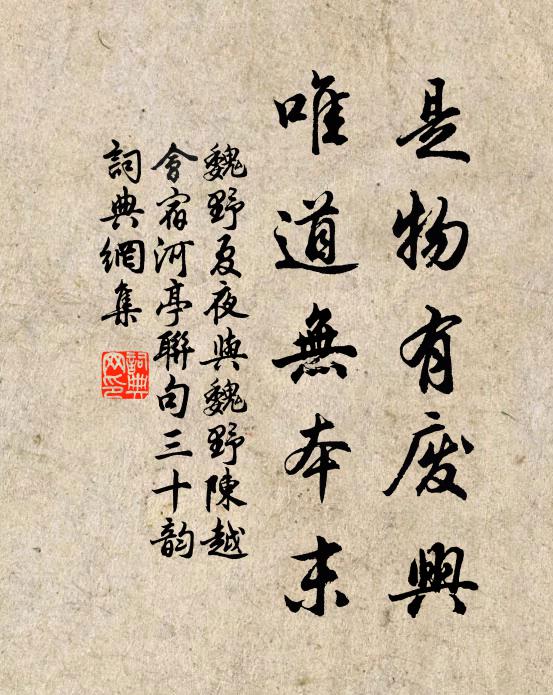 是物有废興
唯道無本末
魏野夏夜與魏野陳越
會宿河亭聯句三十韵
詞典網集
詞典網印